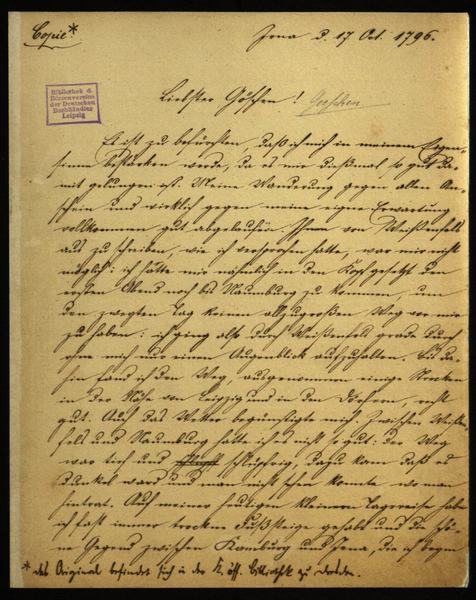 Copie*
Jena d. 17 Oct. 1796.
Bibliothek d.
Börsenvereins
der Deutschen
Buchhändler
Leipzig
Liebster Göschen! Goeschen
Es ist zu befürchten, daß ich mich in meinem Eigen-
sinne bestärken werde, da es mir dießmal so gut da-
mit gelungen ist. Meine Wanderung gegen allen An-
schein und wirklich gegen meine eigne Erwartung
vollkommen gut abgelaufen. Ihnen von Weißenfels
aus zu schreiben, wie ich versprochen hatte, war mir nicht
möglich: ich hatte mir nämlich in den Kopf gesetzt den
ersten Abend noch bis Naumburg zu kommen, um
den zweyten Tag keinen allzugroßen Weg vor mir
zu haben: ich ging also durch Weißenfels grade durch
ohne mich nur einen Augenblick aufzuhalten. Bis da-
hin fand ich den Weg, ausgenommen einige Strecken
in der Nähe von Leipzig und in den Dörfern, recht
gut. Auch das Wetter begünstigte mich. Zwischen Weißen-
fels und Naumburg hatte ich es nicht so gut: der Weg
war tief und schlüpfrig, dazu kam daß es
dunkel ward und man nicht sehen konnte wo man
hintrat. Auf meiner heutigen kleinern Tagereise habe
ich fast immer trockne Fußsteige gehabt und die schö-
ne Gegend zwischen Kamburg und Jena, die ich bey
* das Original befindet sich in der K. öff. Bibliothek zu Dresden.